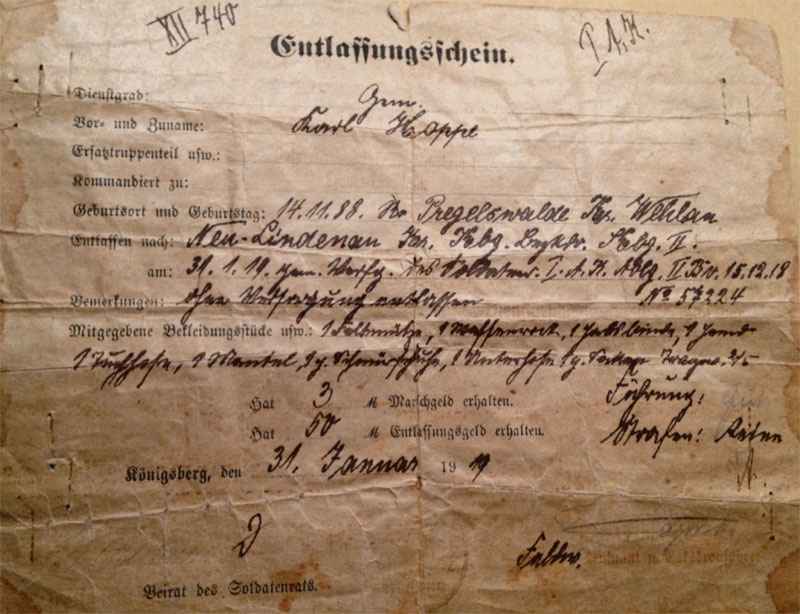 XII 740
I A.K.
Entlassungsschein.
Dienstgrad: Gem.
Vor- und Zuname: Karl Hoppe
Ersatztruppenteil usw.:
Kommandiert zu:
Geburtsort und Geburtstag: 14.11.88. Pregelswalde Krs. Wehlau
Entlassen nach: Neu-Lindenau Krs. Kbg. Bezkdo. Kbg. II.
am: 31.1.19. gem. Verfg. des Soldatenr. I. A.K. Abtg. II B v. 15.12.18
Bemerkungen: ohne Versorgung entlassen No 57224
Mitgegebene Bekleidungsstücke usw.: 1 Feldmütze, 1 Waffenrock, 1 Halsbinde, 1 Hemd
1 Tuchhose, 1 Mantel, 1 p. Schnürschuhe, 1 Unterhose 1 p. Socken
Hat 3 M Marschgeld erhalten. Führung: gut
Hat 50 M Entlassungsgeld erhalten. Strafen: Keine
Königsberg, den 31. Januar 1919
Beirat des Soldatenrats.
Feldw.